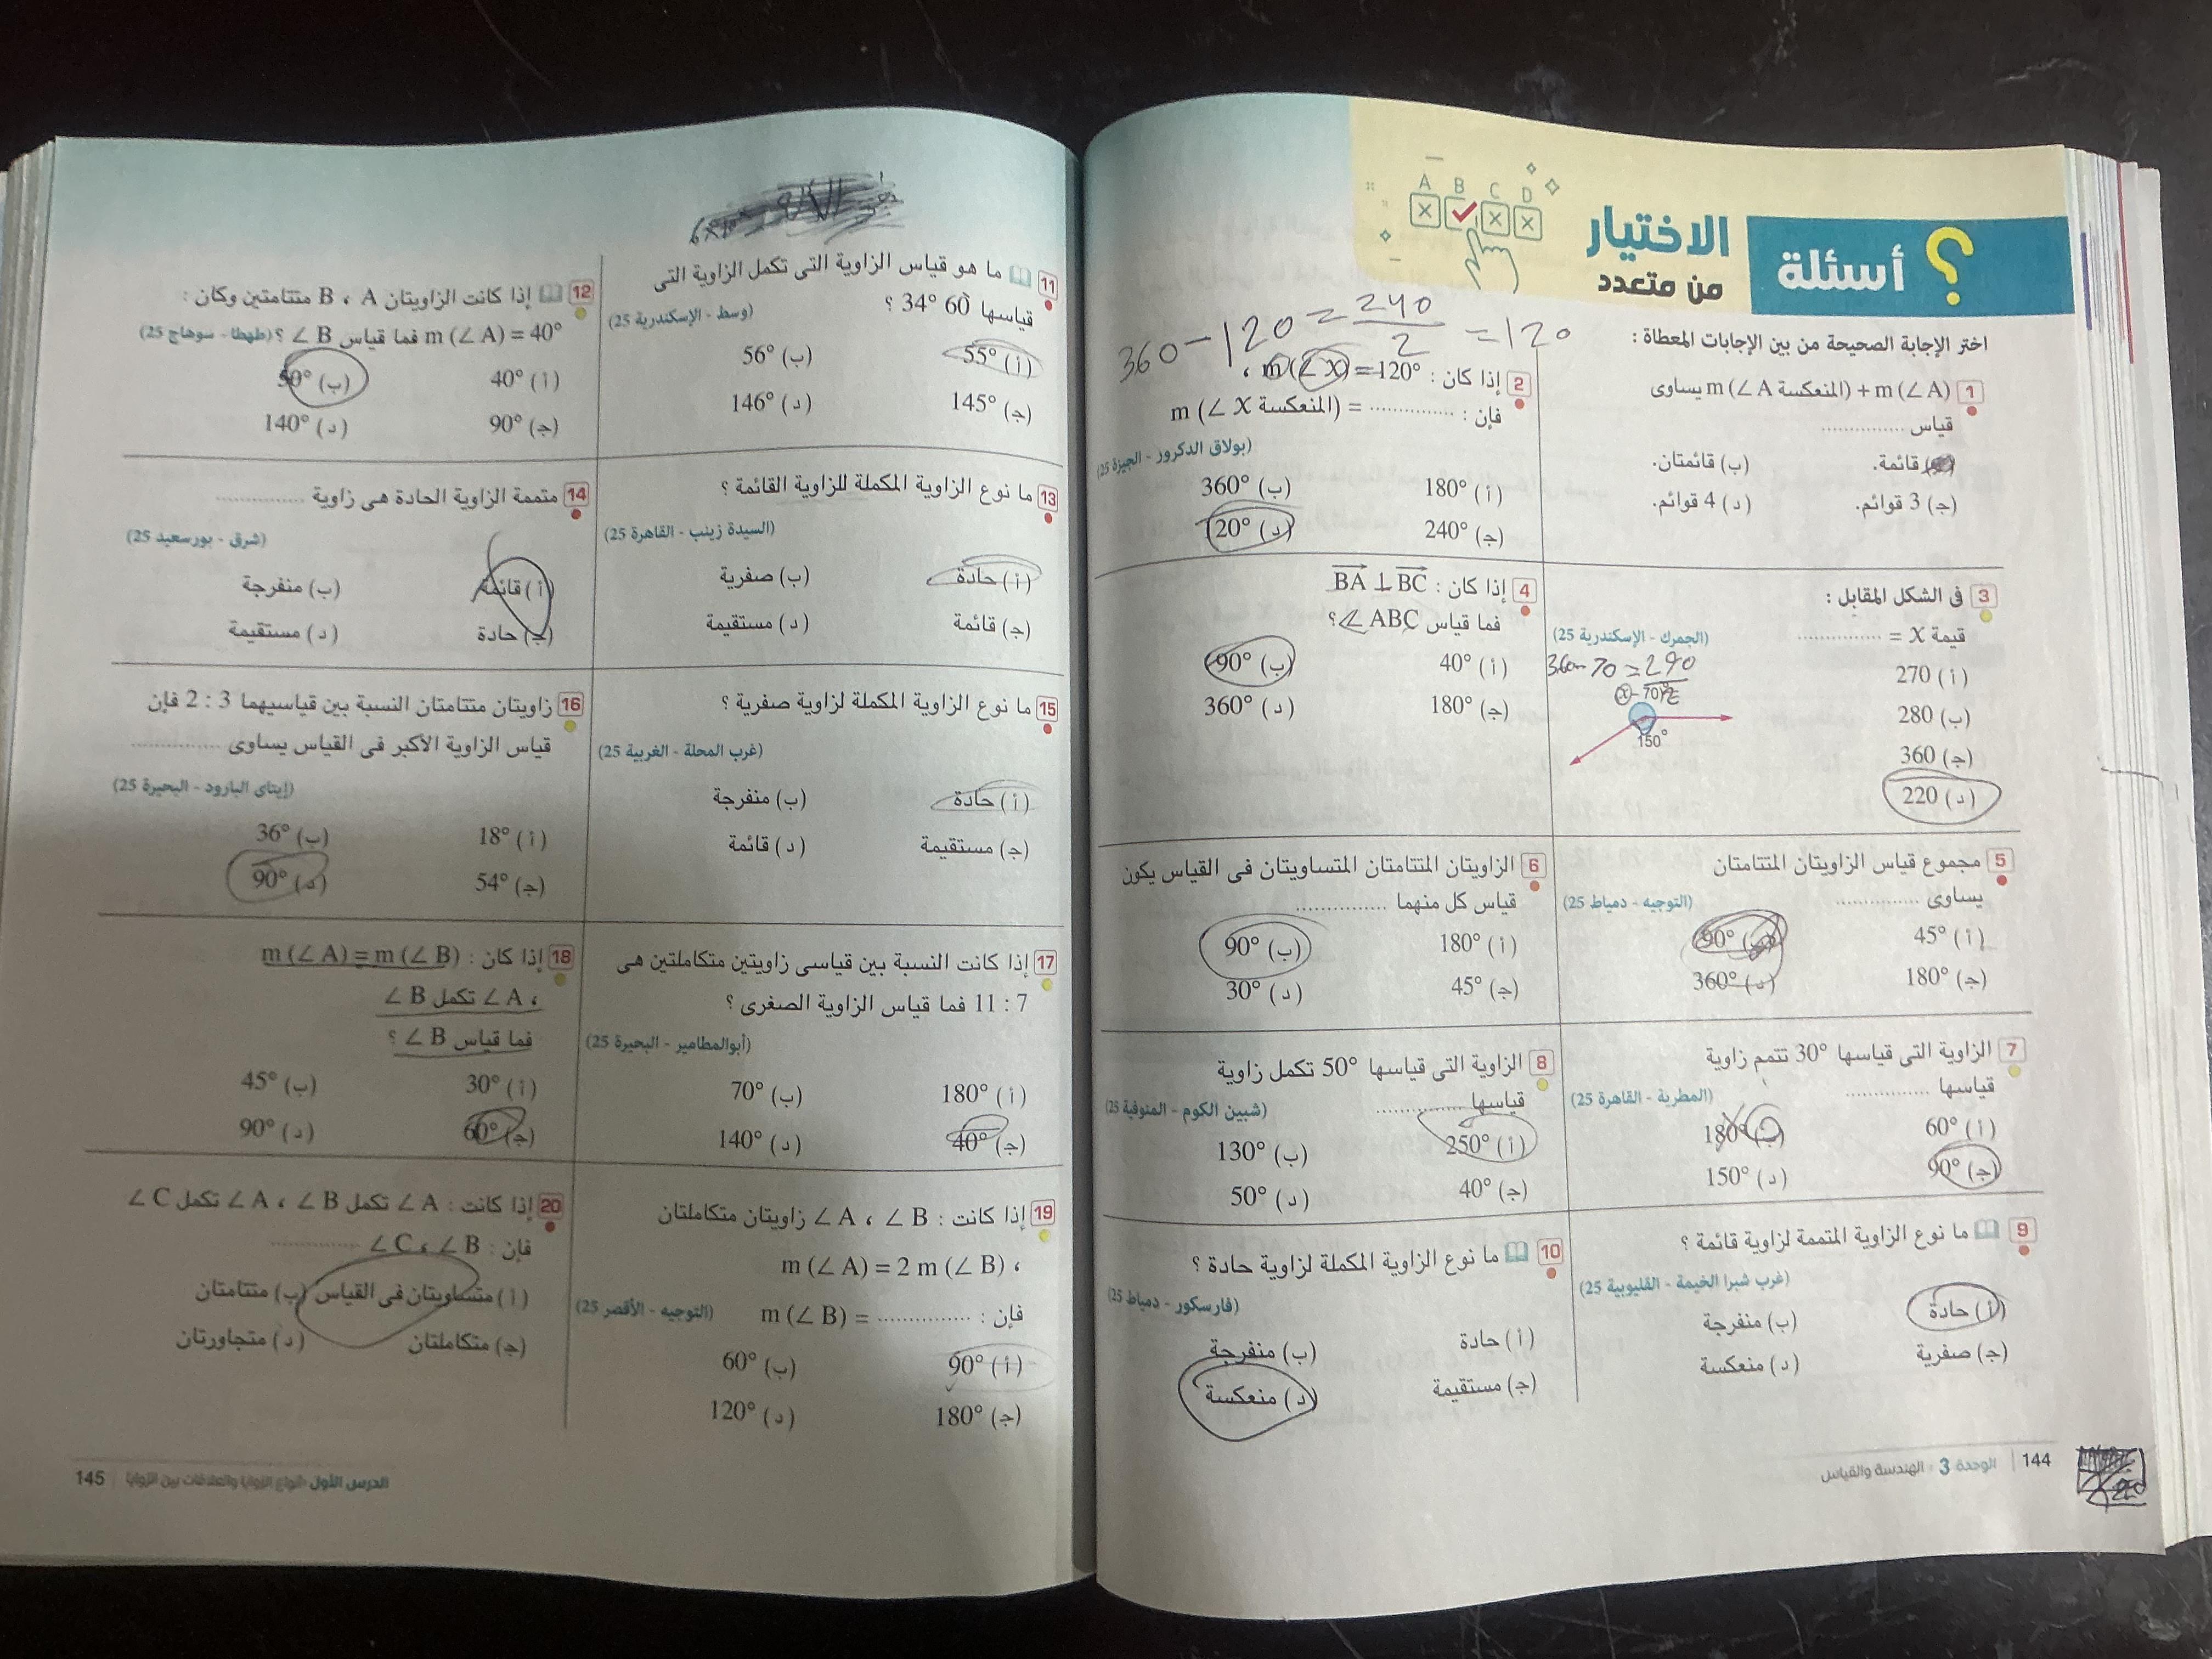 أسئلة الاختيار
من متعدد
A B C D
360 - 120 = 240 / 2 = 120
اختر الإجابة الصحيحة من بين الإجابات المعطاة :
1 m (∠ A) + (المنعكسة m (∠ A يساوى
قياس ...............
(أ) قائمة. (ب) قائمتان.
(ج) 3 قوائم. (د) 4 قوائم.
2 إذا كان : m (∠ X) = 120° ،
فإن : m (∠ X المنعكسة) = ...............
(بولاق الدكرور - الجيزة 25)
(أ) 180° (ب) 360°
(ج) 240° (د) 120°
3 فى الشكل المقابل :
قيمة x = ............... (الجمرك - الإسكندرية 25)
(أ) 270
(ب) 280
(ج) 360
(د) 220
360 - 70 = 290
(x - 70)°
150°
4 إذا كان : BA ⊥ BC
فما قياس ∠ ABC؟
(أ) 40° (ب) 90°
(ج) 180° (د) 360°
5 مجموع قياس الزاويتان المتتامتان
يساوى ............... (التوجيه - دمياط 25)
(أ) 45° (ب) 90°
(ج) 180° (د) 360°
6 الزاويتان المتتامتان المتساويتان فى القياس يكون
قياس كل منهما ...............
(أ) 180° (ب) 90°
(ج) 45° (د) 30°
7 الزاوية التى قياسها 30° تتمم زاوية
قياسها ............... (المطرية - القاهرة 25)
(أ) 60° (ب) 180°
(ج) 90° (د) 150°
8 الزاوية التى قياسها 50° تكمل زاوية
قياسها ............... (شبين الكوم - المنوفية 25)
(أ) 250° (ب) 130°
(ج) 40° (د) 50°
9 ما نوع الزاوية المتممة لزاوية قائمة ؟
(غرب شبرا الخيمة - القليوبية 25)
(أ) حادة (ب) منفرجة
(ج) صفرية (د) منعكسة
10 ما نوع الزاوية المكملة لزاوية حادة ؟
(فارسكور - دمياط 25)
(أ) حادة (ب) منفرجة
(ج) مستقيمة (د) منعكسة
144 الوحدة 3 الهندسة والقياس
11 ما هو قياس الزاوية التى تكمل الزاوية التى
قياسها 60 34° ؟ (وسط - الإسكندرية 25)
(أ) 55° (ب) 56°
(ج) 145° (د) 146°
12 إذا كانت الزاويتان A ، B متتامتين وكان :
m (∠ A) = 40° فما قياس ∠ B ؟ (طهطا - سوهاج 25)
(أ) 40° (ب) 50°
(ج) 90° (د) 140°
13 ما نوع الزاوية المكملة للزاوية القائمة ؟
(السيدة زينب - القاهرة 25)
(أ) حادة (ب) صفرية
(ج) قائمة (د) مستقيمة
14 متممة الزاوية الحادة هى زاوية ...............
(شرق - بورسعيد 25)
(أ) قائمة (ب) منفرجة
(ج) حادة (د) مستقيمة
15 ما نوع الزاوية المكملة لزاوية صفرية ؟
(غرب المحلة - الغربية 25)
(أ) حادة (ب) منفرجة
(ج) مستقيمة (د) قائمة
16 زاويتان متتامتان النسبة بين قياسيهما 3 : 2 فإن
قياس الزاوية الأكبر فى القياس يساوى ...............
(إيتاى البارود - البحيرة 25)
(أ) 18° (ب) 36°
(ج) 54° (د) 90°
17 إذا كانت النسبة بين قياسى زاويتين متكاملتين هى
7 : 11 فما قياس الزاوية الصغرى ؟
(أبوالمطامير - البحيرة 25)
(أ) 180° (ب) 70°
(ج) 40° (د) 140°
18 إذا كان : m (∠ A) = m (∠ B)
، ∠ A تكمل ∠ B
فما قياس ∠ B ؟
(أ) 30° (ب) 45°
(ج) 60° (د) 90°
19 إذا كانت : ∠ A ، ∠ B زاويتان متكاملتان
، m (∠ A) = 2 m (∠ B)
فإن : m (∠ B) = ............... (التوجيه - الأقصر 25)
(أ) 90° (ب) 60°
(ج) 180° (د) 120°
20 إذا كانت : ∠ A تكمل ∠ B ، ∠ A تكمل ∠ C
فإن : ∠ B ، ∠ C ...............
(أ) متساويتان فى القياس (ب) متتامتان
(ج) متكاملتان (د) متجاورتان
الدرس الأول أنواع الزوايا والعلاقات بين الزوايا 145